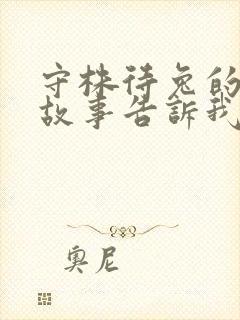 守株待兔的
故事告訴我
奧尼